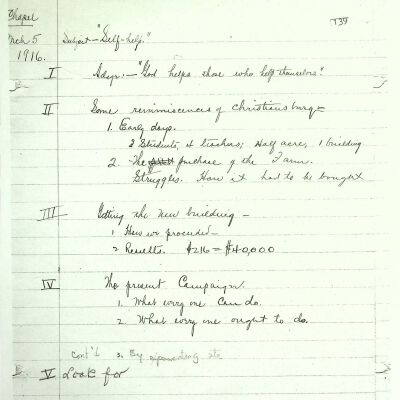 Chapel
Mch 5 Subject - "Self-help."
1916.
I Adage: - "God helps those who help themselves."
II Some reminiscences of Christiansburg -
1. Early days.
Students, teachers; Half acre, 1 building
2. The purchase of the Farm.
Struggles. How it had to be bought
III Getting the new building -
1 How we proceeded -
2 Results. $216 = $40,000
IV The present Campaign.
1. What every one can do.
2. What every one ought to do.
Cont'd 3. By
V Look for